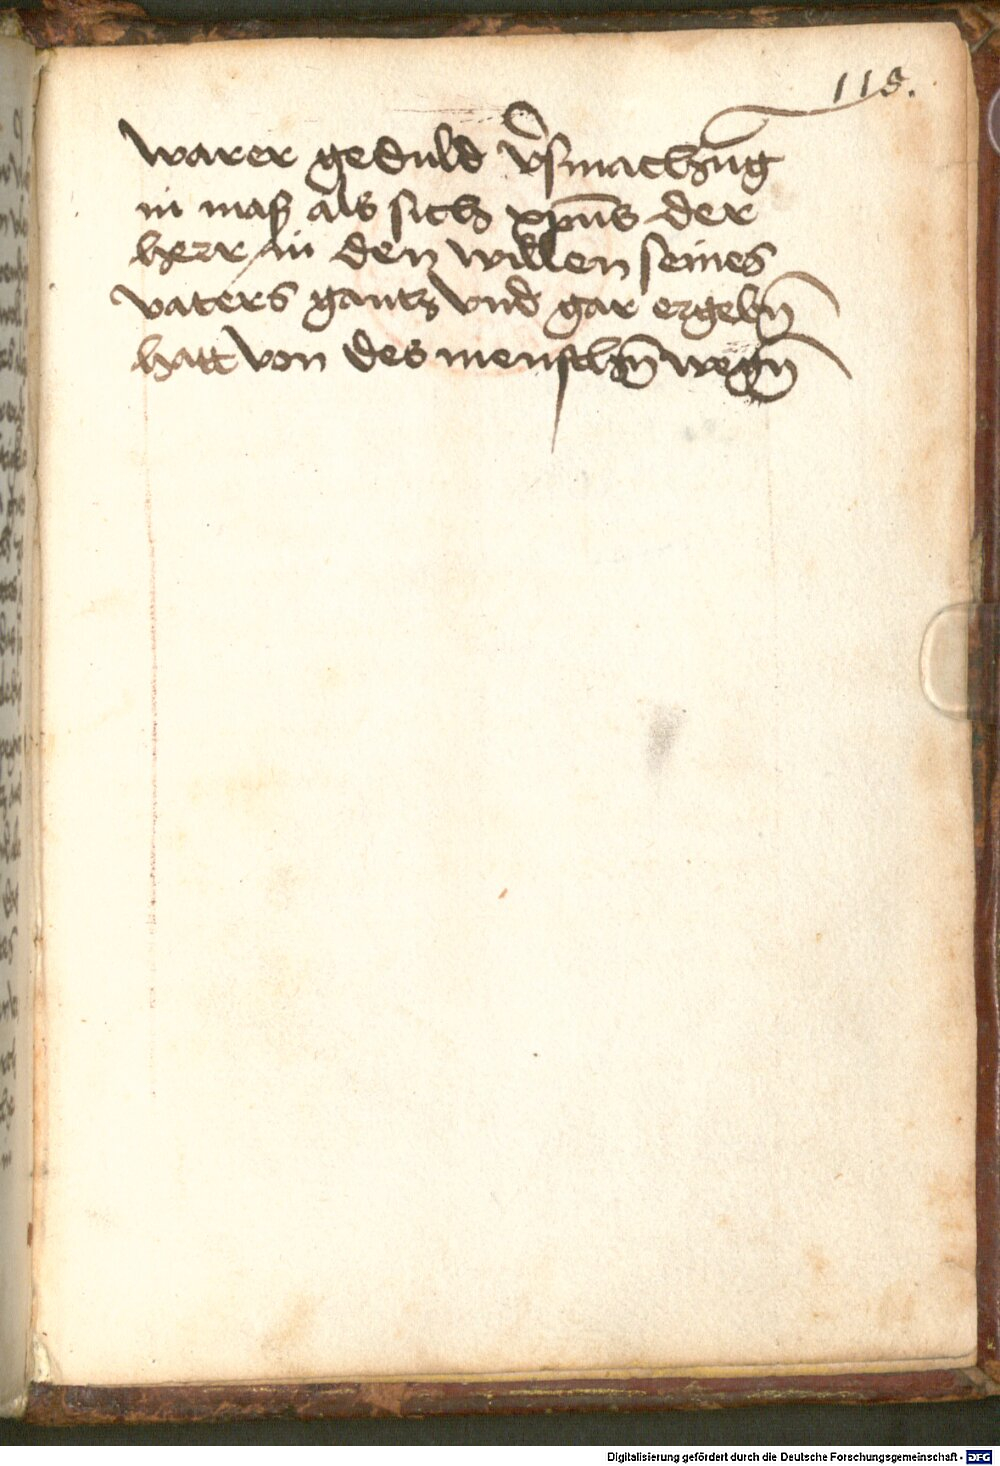 115.
warer geduld v̉smachũg
in maß als sich xp̃us der
herr / in den willen seines
vaters gantz vnd gar ergebñ
hatt von des menschñ wegñ
Digitalisierung gefördert durch die Deutsche Forschungsgemeinschaft - DFG